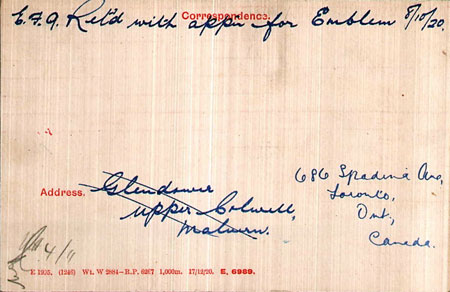 Correspondence.
E.F.9. Ret'd with appn for Emblem 8/10/20.
Address.
Glendower
Upper Colwell,
Malvern.
686 Spadina Ave,
Toronto,
Ont,
Canada.
4/11
E 1935. (1246) Wt. W 2884—R.P. 6287 1,000m. 17/12/20. E. 6989.